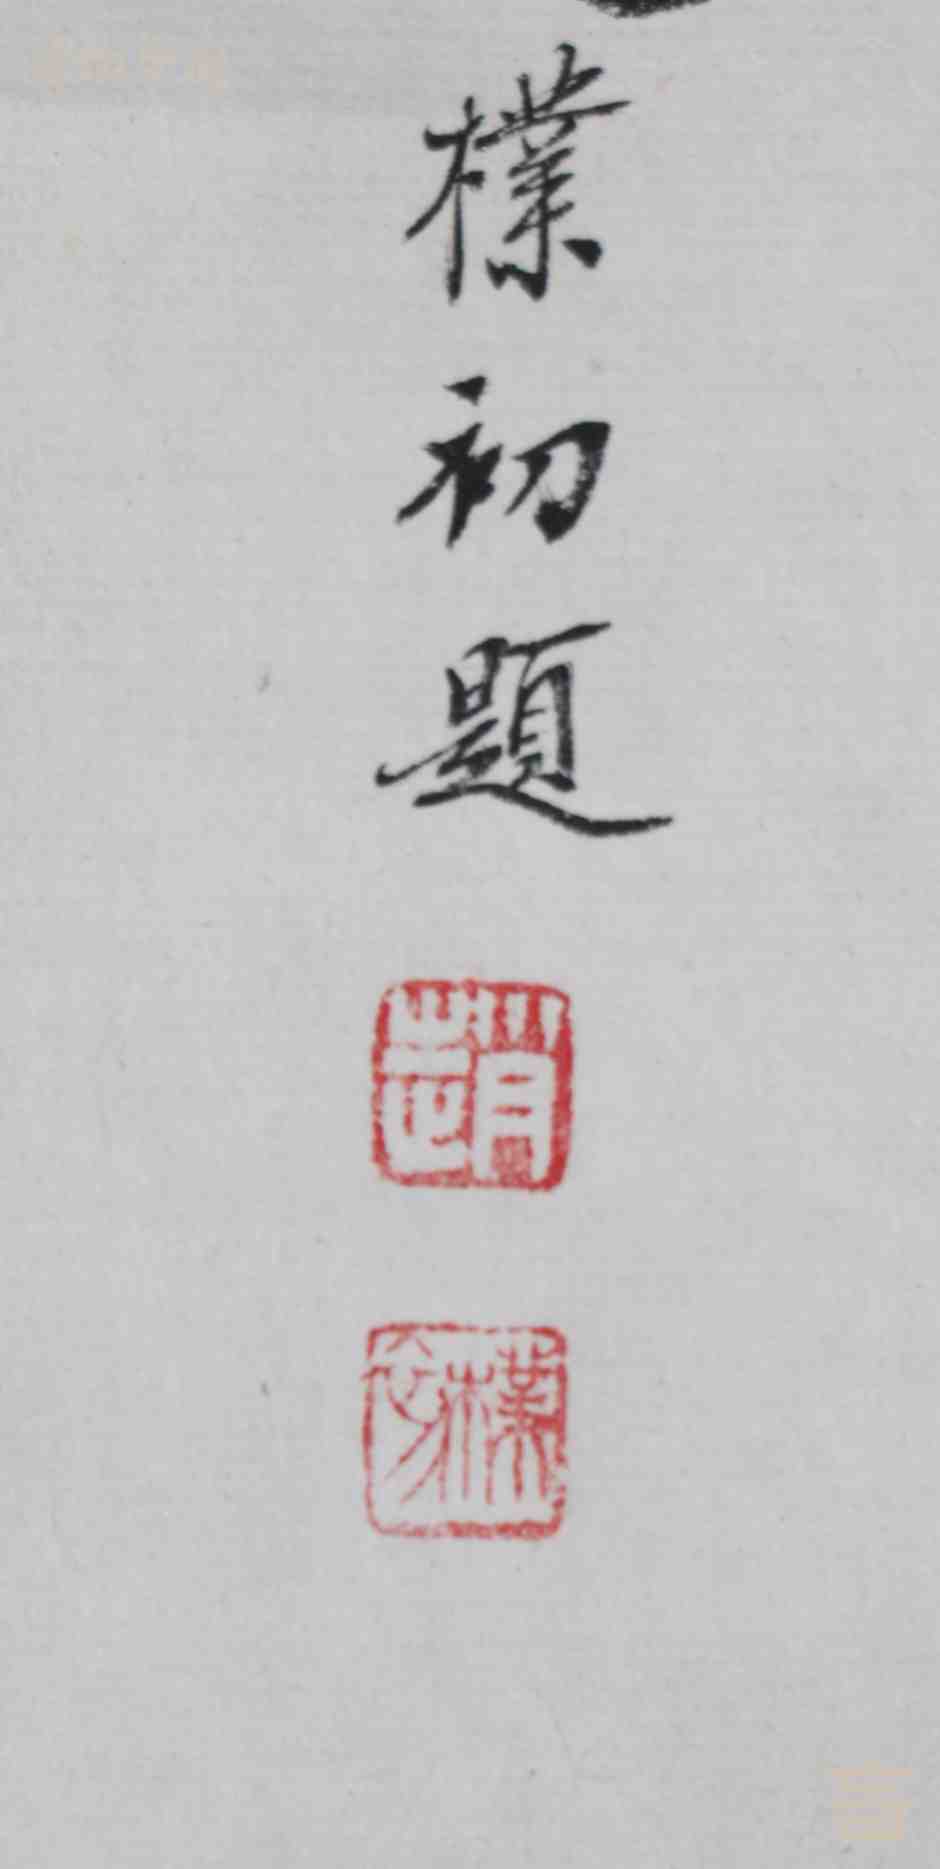 樸初題
趙
樸初